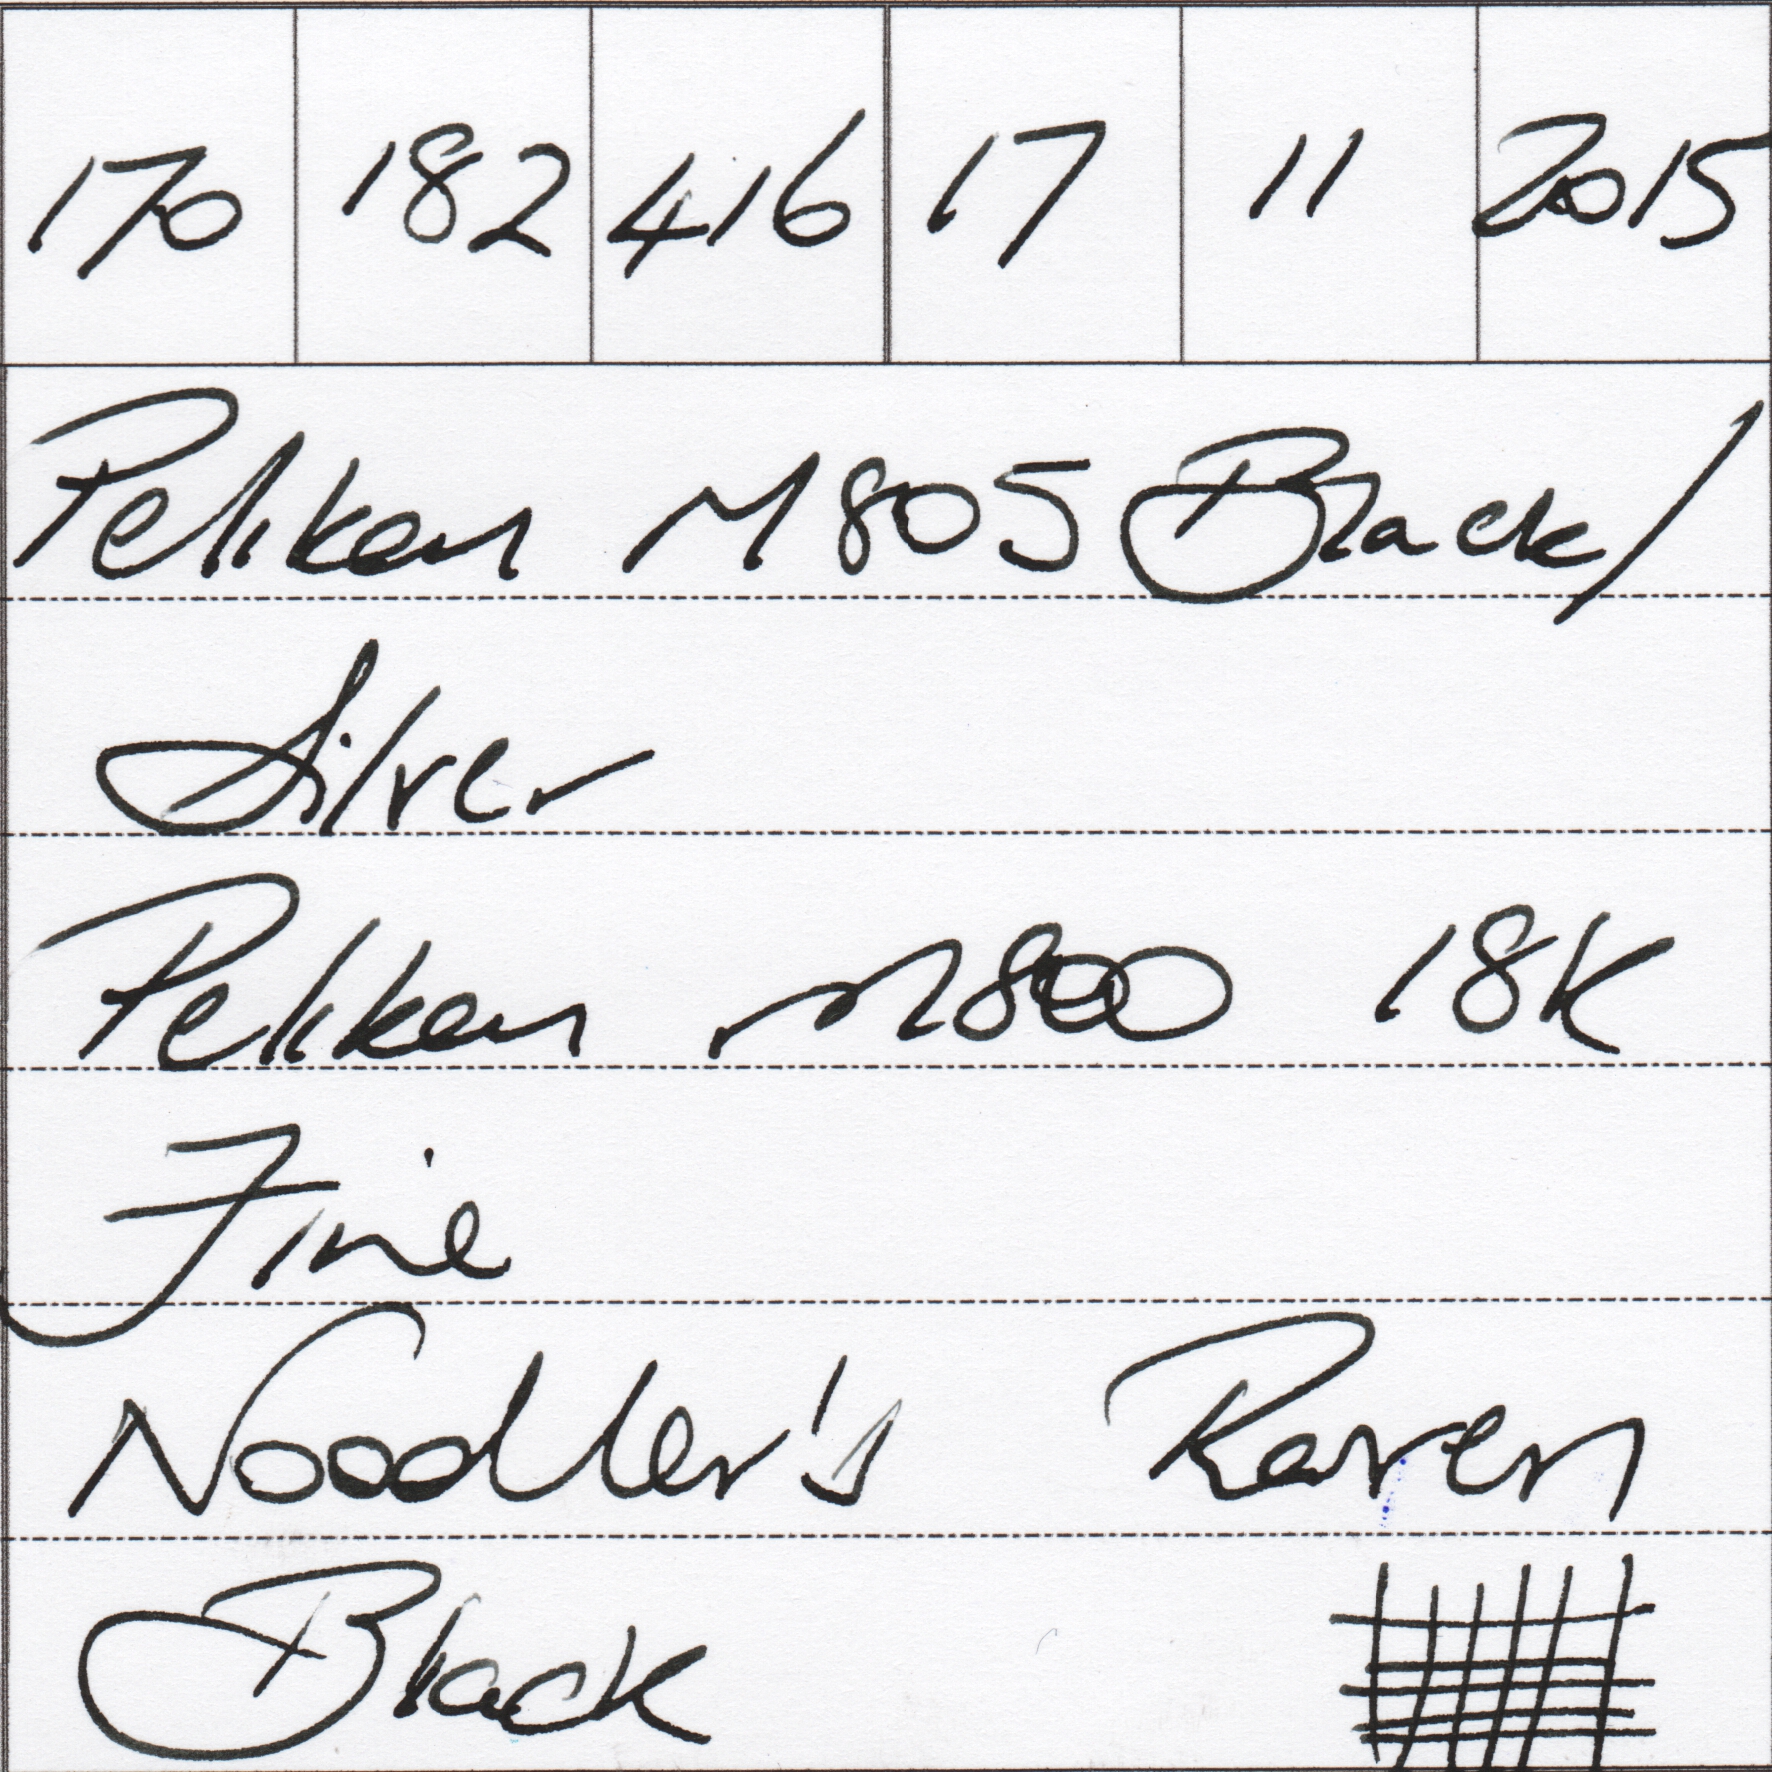 170 182 416 17 11 2015
Pelikan M805 Black/
Silver
Pelikan M800 18K
Fine
Noodler's Raven
Black